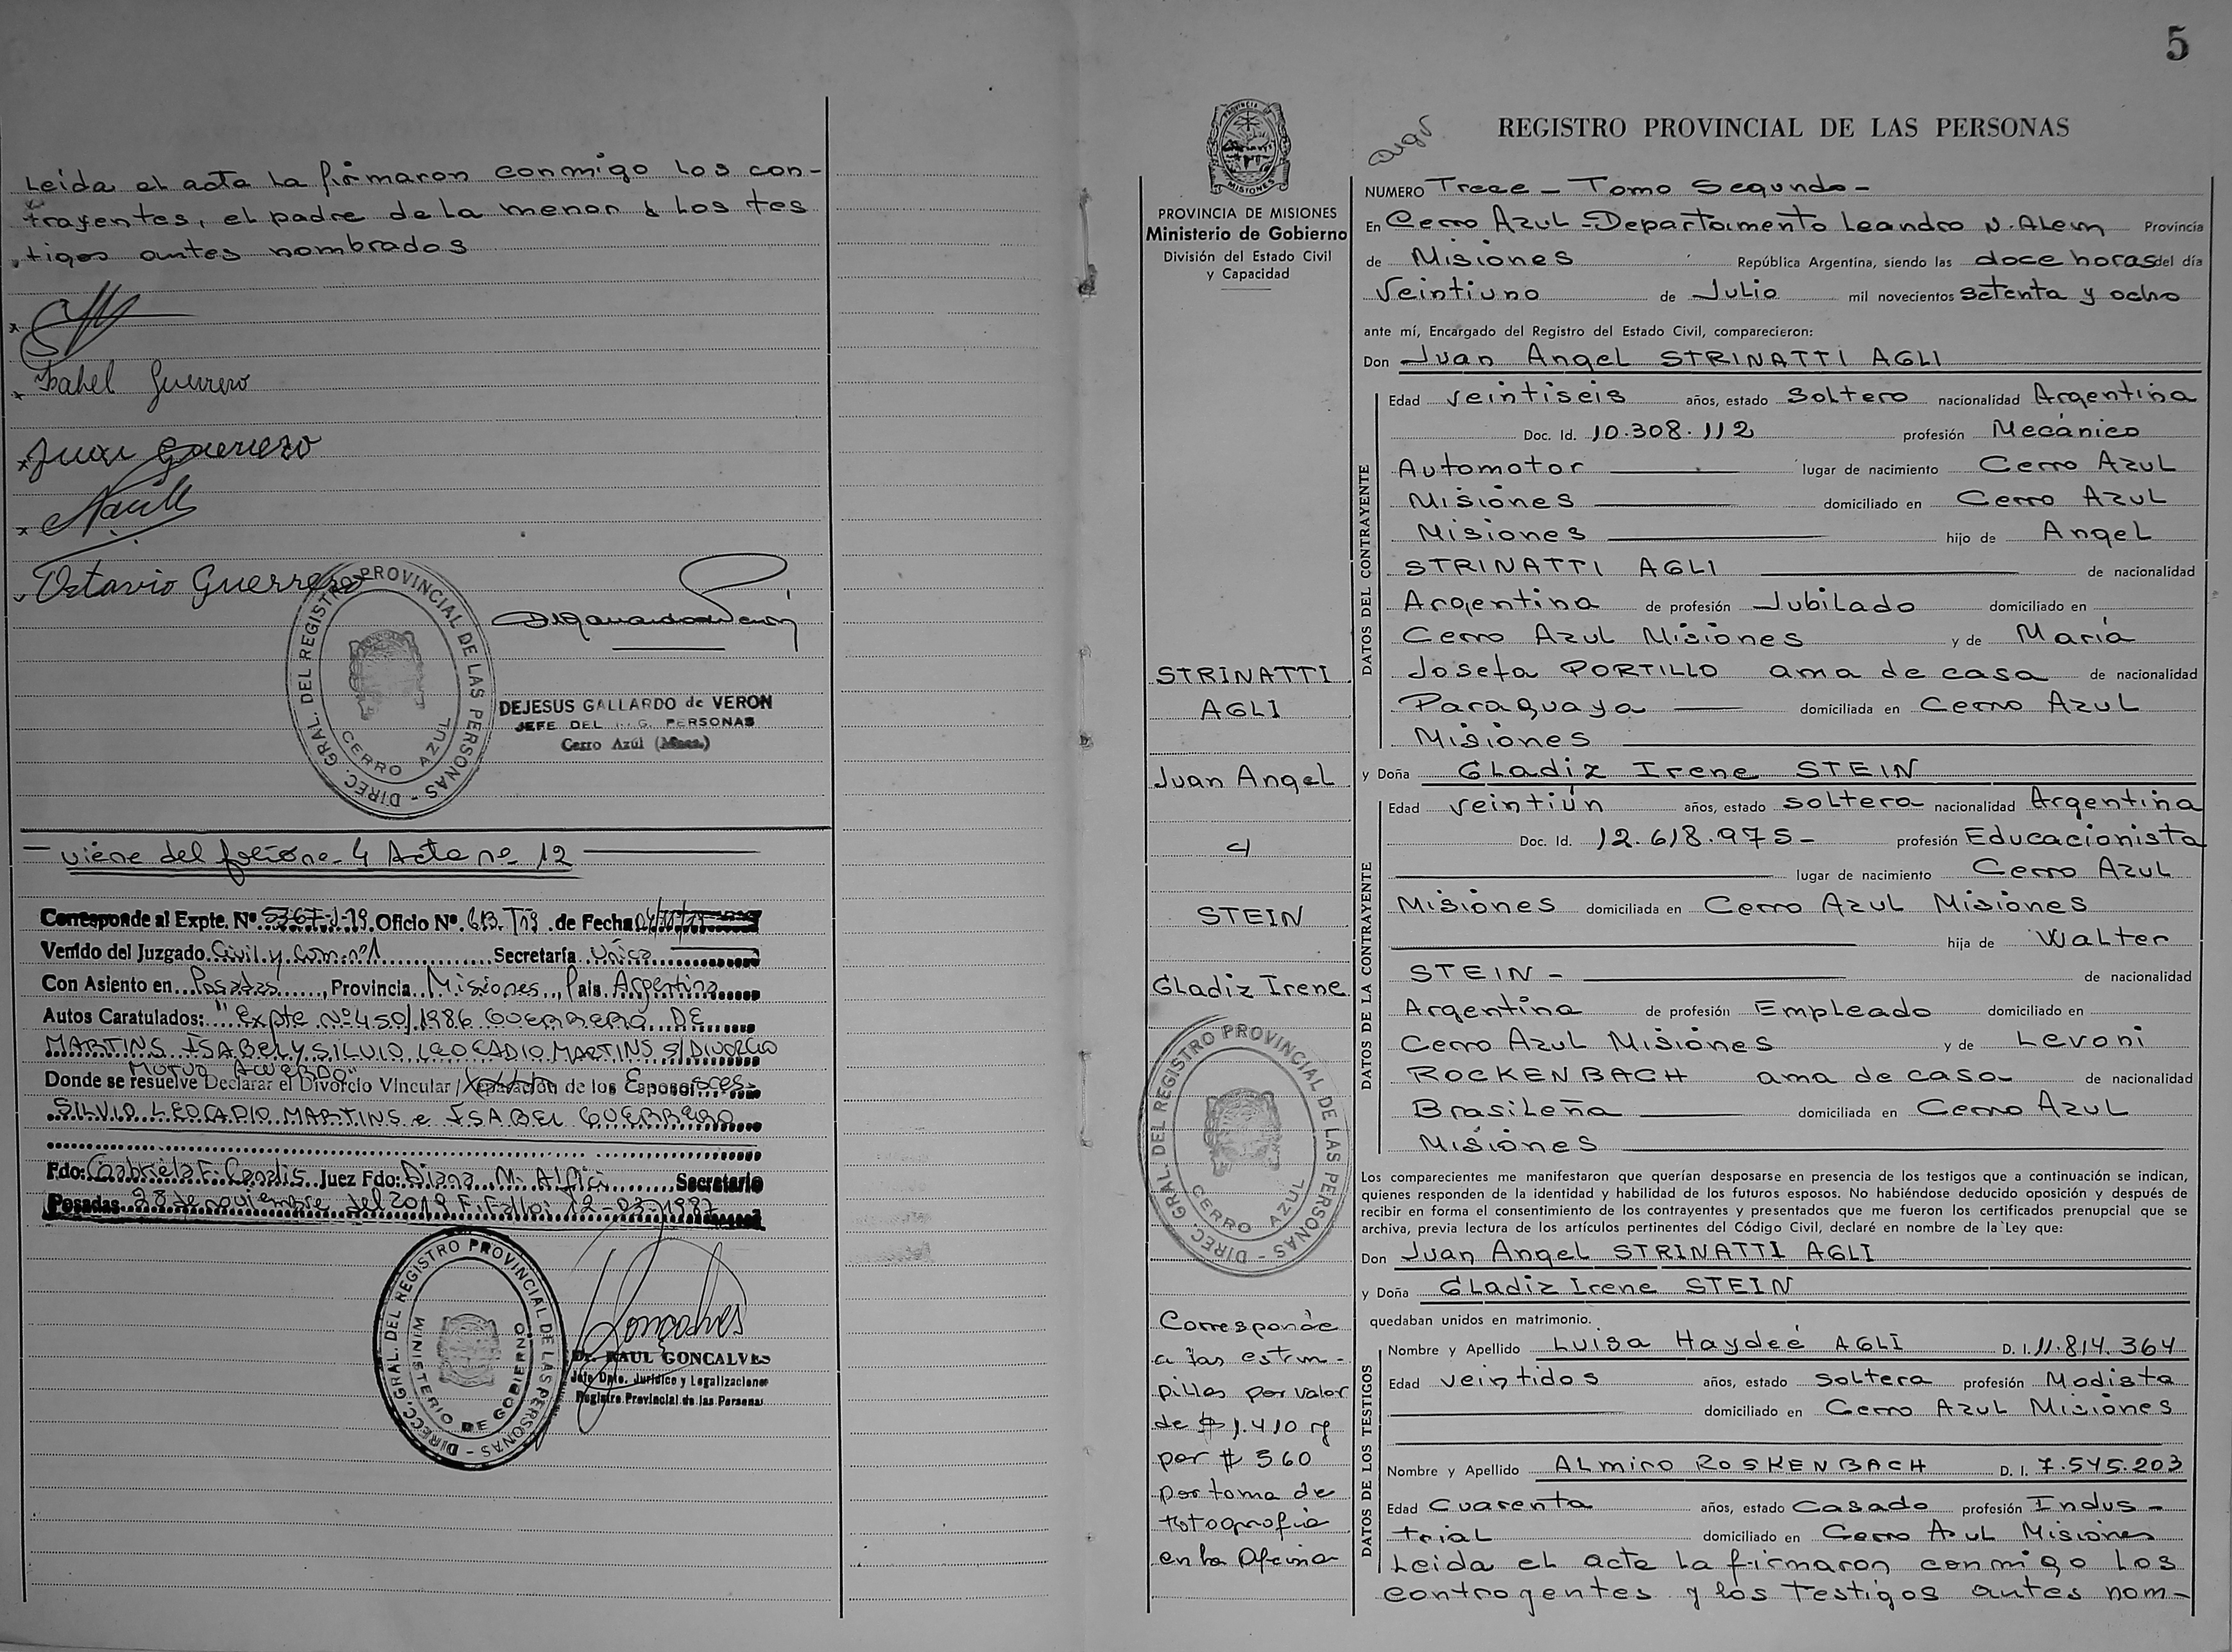 Leida el acta la firmaron conmigo los con-
trayentes, el padre de la menor y los tes
tigos antes nombrados
Isabel Guerrero
Juan Guerrero
Octavio Guerrero
DIREC. GRAL. DEL REGISTRO PROVINCIAL DE LAS PERSONAS -
CERRO AZUL
DEJESUS GALLARDO de VERON
JEFE DEL G. PERSONAS
Cerro Azúl (Mnes.)
- viene del folio no 4 Acta no 12
Corresponde al Expte. Nº 5367-J-19. Oficio Nº. 613. T19. de Fecha
Venido del Juzgado. Civil. y. Com. nº 1 Secretaría Única
Con Asiento en Posadas, Provincia Misiones, Pais. Argentina
Autos Caratulados: "Expte Nº 450/1986 GUERRERO DE
MARTINS ISABEL Y SILVIO LEOCADIO MARTINS S/ DIVORCIO
MUTUO ACUERDO"
Donde se resuelve Declarar el Divorcio Vincular / de los Esposos
SILVIO LEOCADIO MARTINS e ISABEL GUERRERO
Fdo: Gabriela F. Canalis. Juez Fdo: Diana M. Secretario
Posadas 28 de noviembre del 2019 F. Fallo: 12-03-1987
DIRECC. GRAL. DEL REGISTRO PROVINCIAL DE LAS PERSONAS -
MINISTERIO DE GOBIERNO
Dr. RAUL GONCALVES
Jefe Dpto. Jurídico y Legalizaciones
Registro Provincial de las Personas
5
PROVINCIA DE MISIONES
PROVINCIA DE MISIONES
Ministerio de Gobierno
División del Estado Civil
y Capacidad
STRINATTI
AGLI
Juan Angel
c/
STEIN
Gladiz Irene
DIREC. GRAL. DEL REGISTRO PROVINCIAL DE LAS PERSONAS -
CERRO AZUL
Corresponde
a las estam-
pillas por valor
de $ 1.410 y
por $ 560
por toma de
fotografia
en la Oficina
REGISTRO PROVINCIAL DE LAS PERSONAS
NUMERO Trece - Tomo Segundo -
En Cerro Azul - Departamento Leandro N. Alem Provincia
de Misiones República Argentina, siendo las doce horas del día
Veintiuno de Julio mil novecientos setenta y ocho
ante mí, Encargado del Registro del Estado Civil, comparecieron:
Don Juan Angel STRINATTI AGLI
DATOS DEL CONTRAYENTE
Edad veintiseis años, estado Soltero nacionalidad Argentina
Doc. Id. 10.308.112 profesión Mecánico
Automotor lugar de nacimiento Cerro Azul
Misiones domiciliado en Cerro Azul
Misiones hijo de Angel
STRINATTI AGLI de nacionalidad
Argentina de profesión Jubilado domiciliado en
Cerro Azul Misiones y de María
Josefa PORTILLO ama de casa de nacionalidad
Paraguaya domiciliada en Cerro Azul
Misiones
y Doña Gladiz Irene STEIN
DATOS DE LA CONTRAYENTE
Edad veintiún años, estado soltera nacionalidad Argentina
Doc. Id. 12.618.975- profesión Educacionista
lugar de nacimiento Cerro Azul
Misiones domiciliada en Cerro Azul Misiones
hija de Walter
STEIN - de nacionalidad
Argentina de profesión Empleado domiciliado en
Cerro Azul Misiones y de Levoni
ROCKENBACH ama de casa de nacionalidad
Brasileña domiciliada en Cerro Azul
Misiones
Los comparecientes me manifestaron que querían desposarse en presencia de los testigos que a continuación se indican,
quienes responden de la identidad y habilidad de los futuros esposos. No habiéndose deducido oposición y después de
recibir en forma el consentimiento de los contrayentes y presentados que me fueron los certificados prenupcial que se
archiva, previa lectura de los artículos pertinentes del Código Civil, declaré en nombre de la Ley que:
Don Juan Angel STRINATTI AGLI
y Doña Gladiz Irene STEIN
quedaban unidos en matrimonio.
DATOS DE LOS TESTIGOS
Nombre y Apellido Luisa Haydeé AGLI D. I. 11.814.364
Edad veintidos años, estado Soltera profesión Modista
domiciliado en Cerro Azul Misiones
Nombre y Apellido ALmiro ROSKENBACH D. I. 7.545.203
Edad Cuarenta años, estado Casado profesión Indus-
trial domiciliado en Cerro Azul Misiones
Leida el acta la firmaron conmigo los
contrayentes y los testigos antes nom-